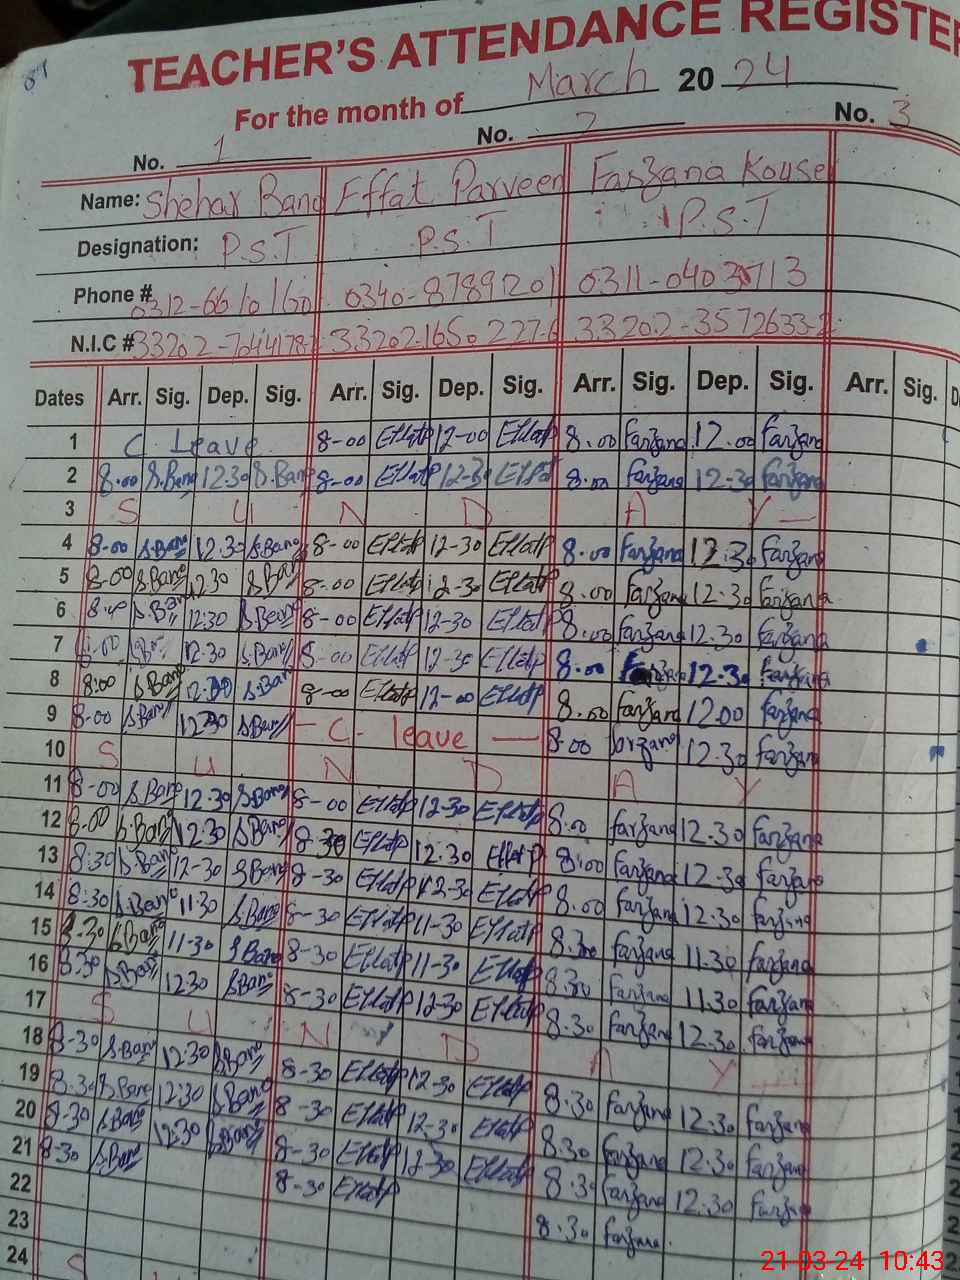 TEACHER'S ATTENDANCE REGISTE
For the month of March 20 24
No. 1 No. 2 No. 3
Name: Shehar Bano Effat Parveen Farzana Kouser
Designation: P.S.T P.S.T P.S.T
Phone # 0340-8789201 0311-0403713
N.I.C # 33202-1650227-6 33202-3572633-2
Dates Arr. Sig. Dep. Sig. Arr. Sig. Dep. Sig. Arr. Sig. Dep. Sig. Arr. Sig. D
1 C Leave 8-00 EffatP 12-00 EffatP 8.00 Farzana 12.00 Farzana
2 8.00 S.Bano 12.30 S.Bano 8-00 EffatP 12-30 EffatP 8.00 Farzana 12-30 Farzana
3 S U N D A Y
4 8-00 S.Bano 12.30 S.Bano 8-00 EffatP 12-30 EffatP 8.00 Farzana 12.30 Farzana
5 8.00 S.Bano 12.30 S.Bano 8-00 EffatP 12-30 EffatP 8.00 Farzana 12.30 Farzana
6 S.Bano 12:30 S.Bano 8-00 EffatP 12-30 EffatP 8.00 Farzana 12.30 Farzana
7 8-00 12-30 S.Bano 8-00 EffatP 12-30 EffatP 8.00 Farzana 12.30 Farzana
8 8:00 S.Bano S.Bano 8-00 EffatP 12-00 EffatP 8.00 Farzana 12.00 Farzana
9 8-00 S.Bano 12.30 S.Bano C- leave 8.00 Farzana 12.30 Farzana
10 S U N D A Y
11 8-00 S.Bano 12.30 S.Bano 8-00 EffatP 12-30 EffatP 8.00 Farzana 12.30 Farzana
12 8.00 S.Bano 12.30 S.Bano 8-30 EffatP 12.30 EffatP 8.00 Farzana 12.30 Farzana
13 8:30 S.Bano 12-30 S.Bano 8-30 EffatP 12-30 EffatP 8.00 Farzana 12.30 Farzana
14 8:30 S.Bano 11.30 S.Bano 8-30 EffatP 11-30 EffatP 8.30 Farzana 11.30 Farzana
15 8.30 S.Bano 11-30 S.Bano 8-30 EffatP 11-30 EffatP 8.30 Farzana 11.30 Farzana
16 8.30 S.Bano 12.30 S.Bano 8-30 EffatP 12-30 EffatP 8.30 Farzana 12.30 Farzana
17 S U N D A Y
18 8-30 S.Bano 12.30 S.Bano 8-30 EffatP 12-30 EffatP 8.30 Farzana 12.30 Farzana
19 8.30 S.Bano 12.30 S.Bano 8-30 EffatP 12-30 EffatP 8.30 Farzana 12.30 Farzana
20 8-30 S.Bano 12.30 S.Bano 8-30 EffatP 12-30 EffatP 8.30 Farzana 12.30 Farzana
21 8-30 S.Bano 8-30 EffatP 8.30 Farzana
22
23
24 S
21-03-24 10:43